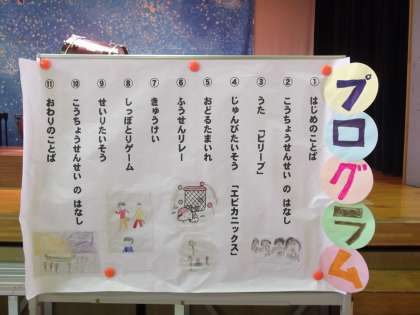 プログラム
① はじめのことば
② こうちょうせんせい の はなし
③ うた 「ビリーブ」
④ じゅんびたいそう 「エビカニックス」
⑤ おどるたまいれ
⑥ ふうせんリレー
⑦ きゅうけい
⑧ しっぽとりゲーム
⑨ せいりたいそう
⑩ こうちょうせんせい の はなし
⑪ おわりのことば